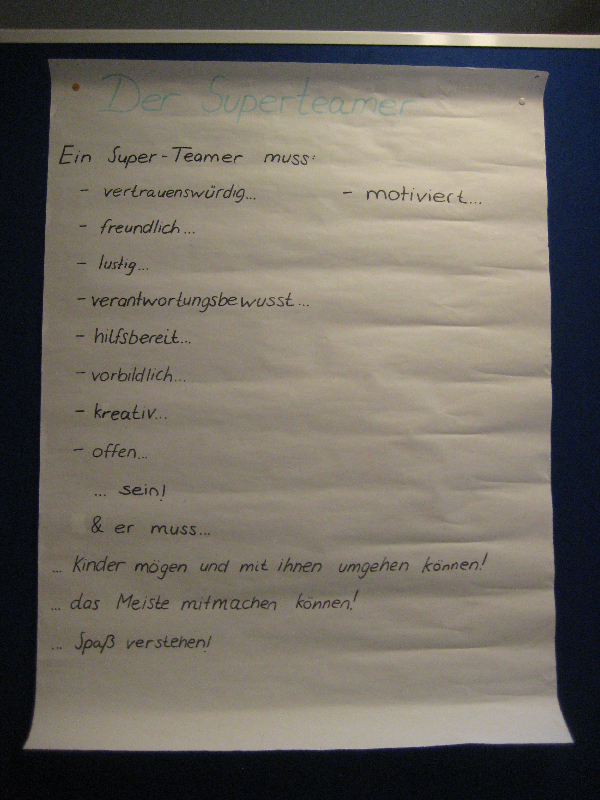 Der Superteamer
Ein Super-Teamer muss:
- vertrauenswürdig...
- motiviert...
- freundlich...
- lustig...
- verantwortungsbewusst...
- hilfsbereit...
- vorbildlich...
- kreativ...
- offen...
... sein!
& er muss...
... Kinder mögen und mit ihnen umgehen können!
... das Meiste mitmachen können!
... Spaß verstehen!